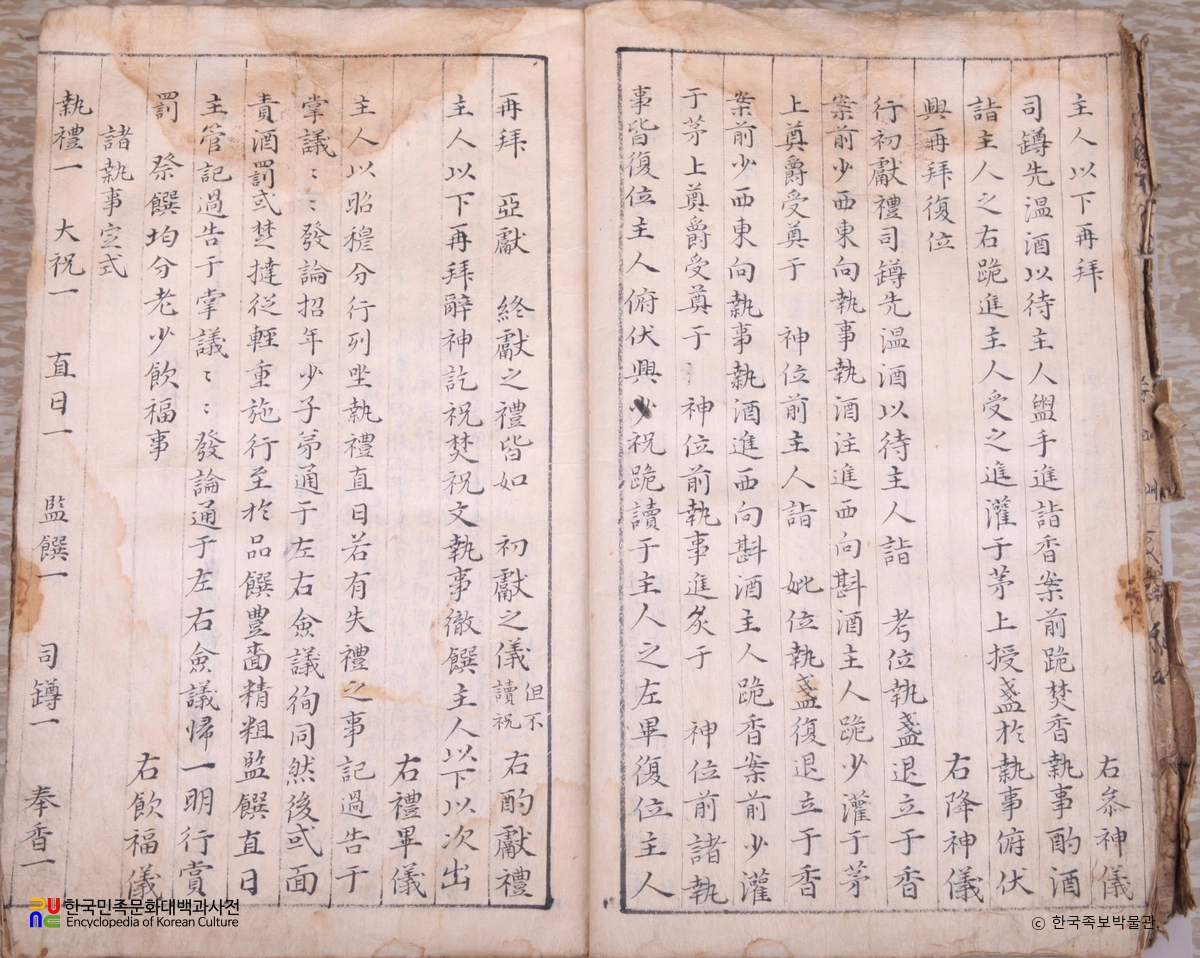 主人以下再拜 右叅神儀
司罇先温酒以待主人盥手進詣香案前跪焚香執事酌酒
詣主人之右跪進主人受之進灌于茅上授盞於執事俯伏
興再拜復位 右降神儀
行初獻禮司罇先温酒以待主人詣 考位執盞退立于香
案前少西東向執事執酒注進西向斟酒主人跪少灌于茅
上奠爵受奠于 神位前主人詣 妣位執盞復退立于香
案前少西東向執事執酒進西向斟酒主人跪香案前少灌
于茅上奠爵受奠于 神位前執事進炙于 神位前諸執
事皆復位主人俯伏興少祝跪讀于主人之左畢復位主人
再拜 亞獻 終獻之禮皆如 初獻之儀 但不讀祝 右酌獻禮
主人以下再拜辭神訖祝焚祝文執事徹饌主人以下以次出
右禮畢儀
主人以昭穆分行列坐執禮直日若有失禮之事記過告于
掌議〻〻發論招年少子弟通于左右僉議徇同然後或面
責酒罰或楚撻從輕重施行至於品饌豊嗇精粗監饌直日
主管記過告于掌議〻〻發論通于左右僉議歸一明行賞
罰 祭饌均分老少飮福事 右飮福儀
諸執事定式
執禮一 大祝一 直日一 監饌一 司罇一 奉香一
한국민족문화대백과사전
Encyclopedia of Korean Culture
ⓒ 한국족보박물관